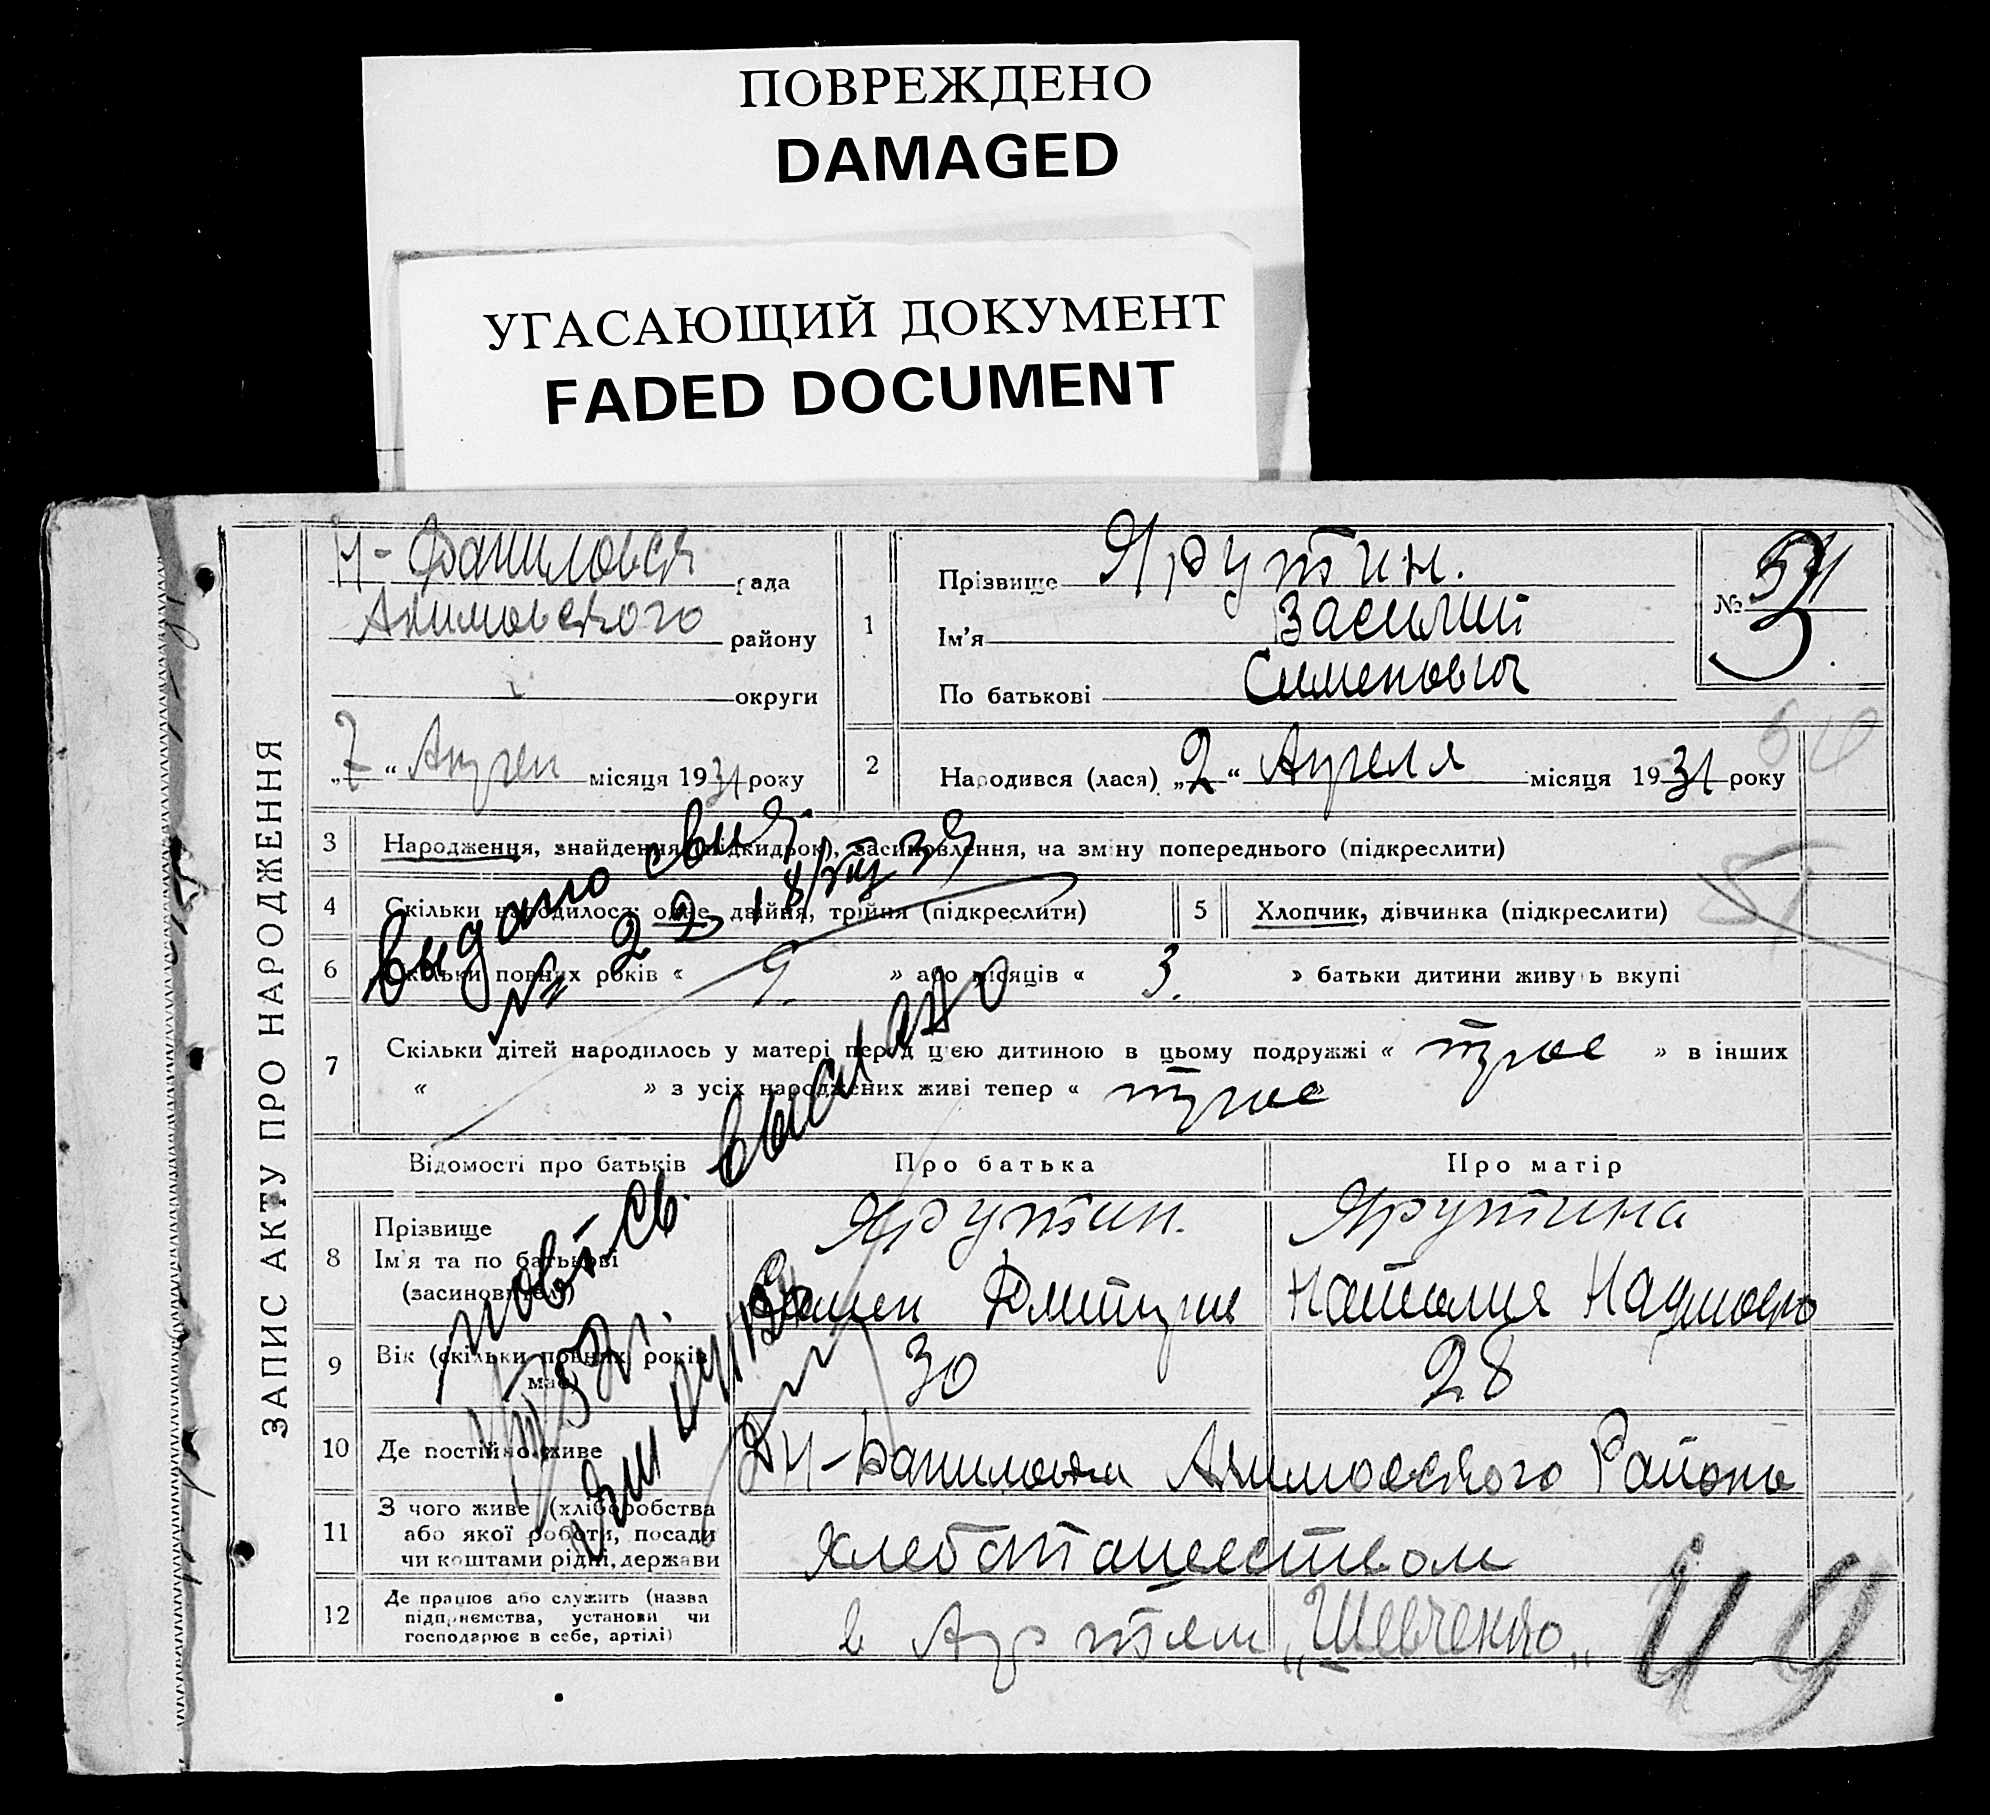 ПОВРЕЖДЕНО
DAMAGED
УГАСАЮЩИЙ ДОКУМЕНТ
FADED DOCUMENT
ЗАПИС АКТУ ПРО НАРОДЖЕННЯ
рада
Акимовского району
округи
„7“ Апреля місяця 1931 року
1 Прізвище Ярутин.
Ім'я Василий
По батькові Сименович
№
2 Народився (лася) „2“ Апреля місяця 1931 року
3 Народження, знайдення (підкидьок), засиновлення, на зміну попереднього (підкреслити)
4 Скільки народилося: одне, двійня, трійня (підкреслити)
5 Хлопчик, дівчинка (підкреслити)
6 Скільки повних років « 9. » або місяців « 3. » батьки дитини живуть вкупі
7 Скільки дітей народилось у матері перед цією дитиною в цьому подружжі « трое » в інших
« » з усіх народжених живі тепер « трое »
выдано
№ 22
Відомості про батьків
Про батька
Про матір
8 Прізвище
Ім'я та по батькові
(засиновителів)
Ярутин.
Ярутина
Семен
Наталия
9 Вік (скільки повних років має)
30
28
10 Де постійно живе
Н-Даниловка Акимовского Района
11 З чого живе (хліборобства
або якої роботи, посади
чи коштами рідні, держави
хлебопашеством
12 Де працює або служить (назва
підприємства, установи чи
господарює в себе, артілі)
в Артели „Шевченко„
49